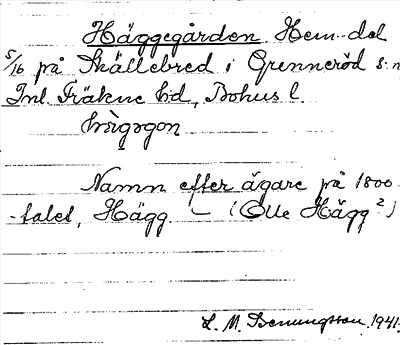 Häggegården Hem.-del
5/16 på Skällebred i Grenneröd s:n
Inl. Fräkne hd, Bohusl.
Namn efter ägare på 1800-
-talet, Hägg. — (Olle Hägg ?)
L. M. Bennungsson 1941.